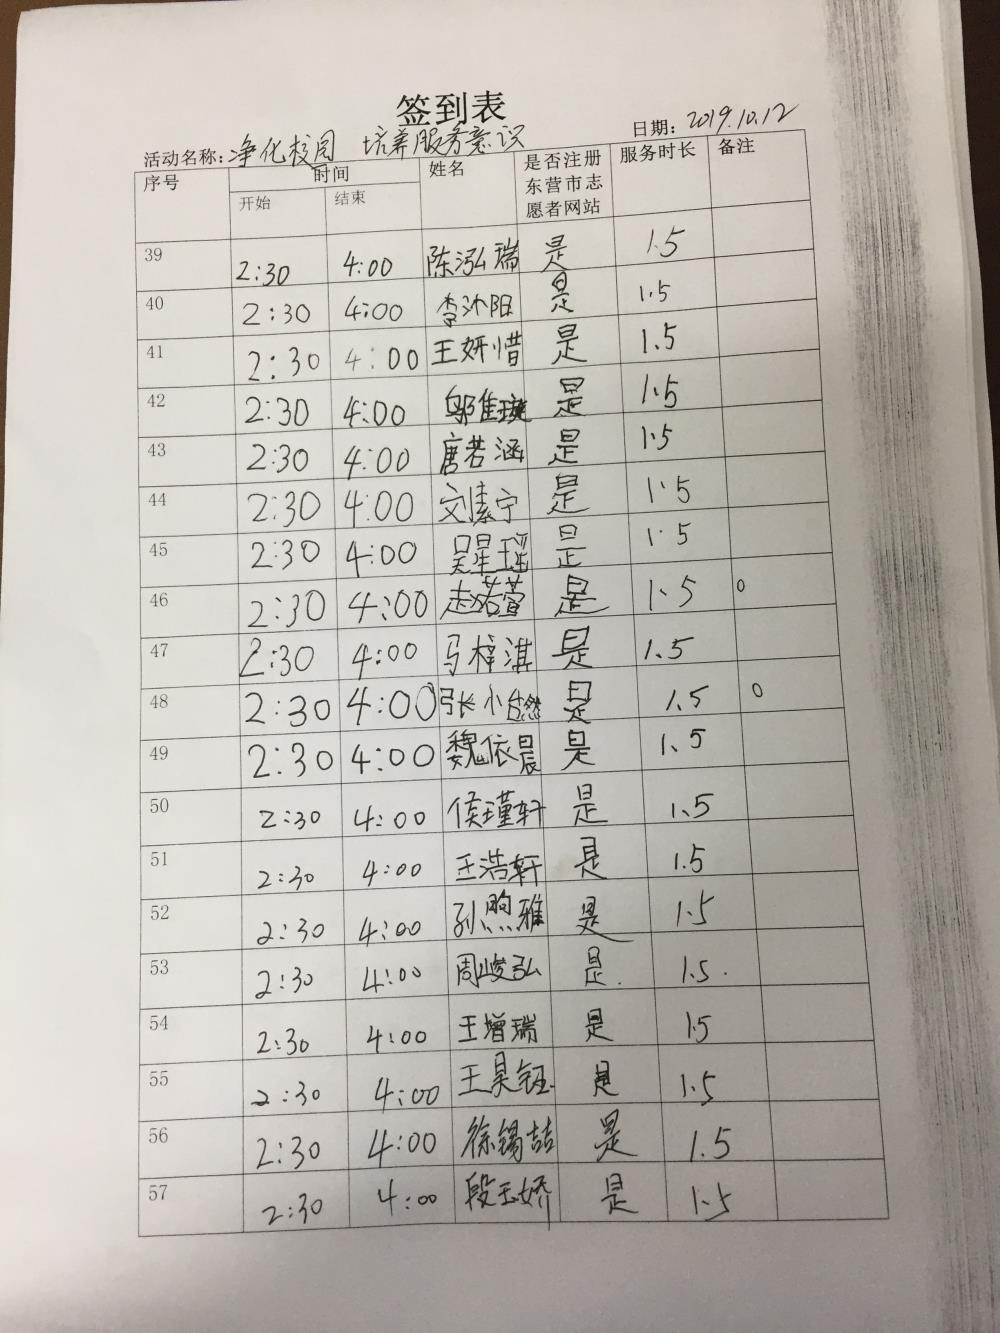 签到表
活动名称：净化校园 培养服务意识 日期：2019.10.12
序号 时间 姓名 是否注册东营市志愿者网站 服务时长 备注
开始 结束
39 2:30 4:00 陈泓瑞 是 1.5
40 2:30 4:00 李沐阳 是 1.5
41 2:30 4:00 王妍惜 是 1.5
42 2:30 4:00 是 1.5
43 2:30 4:00 唐若涵 是 1.5
44 2:30 4:00 是 1.5
45 2:30 4:00 吴星瑶 是 1.5
46 2:30 4:00 赵若萱 是 1.5
47 2:30 4:00 马梓淇 是 1.5
48 2:30 4:00 是 1.5
49 2:30 4:00 魏依晨 是 1.5
50 2:30 4:00 侯瑾轩 是 1.5
51 2:30 4:00 王浩轩 是 1.5
52 2:30 4:00 孙煦雅 是 1.5
53 2:30 4:00 周峻弘 是. 1.5.
54 2:30 4:00 王增瑞 是 1.5
55 2:30 4:00 王昊钰 是 1.5
56 2:30 4:00 徐锡喆 是 1.5
57 2:30 4:00 段玉娇 是 1.5